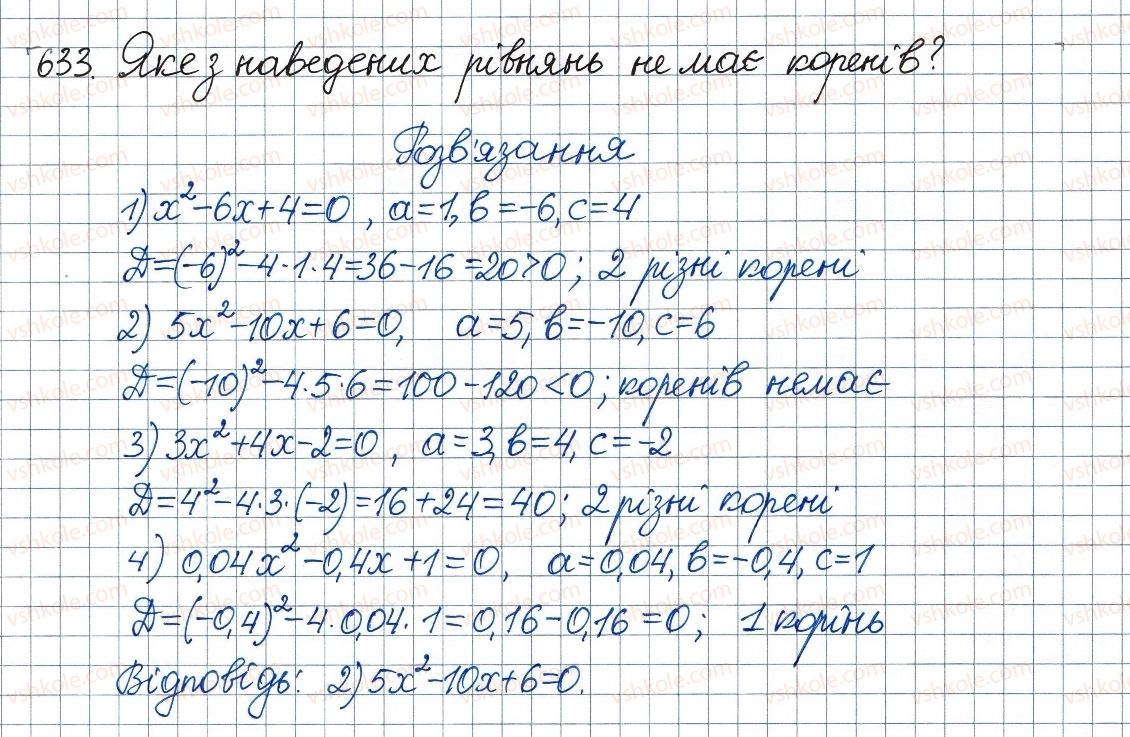 633. Яке з наведених рівнянь не має коренів?
Розв'язання
1) x²-6x+4=0, a=1, b=-6, c=4
Д=(-6)²-4·1·4=36-16=20>0; 2 різні корені
2) 5x²-10x+6=0, a=5, b=-10, c=6
Д=(-10)²-4·5·6=100-120<0; коренів немає
3) 3x²+4x-2=0, a=3, b=4, c=-2
Д=4²-4·3·(-2)=16+24=40; 2 різні корені
4) 0,04x²-0,4x+1=0, a=0,04, b=-0,4, c=1
Д=(-0,4)²-4·0,04·1=0,16-0,16=0; 1 корінь
Відповідь: 2) 5x²-10x+6=0.